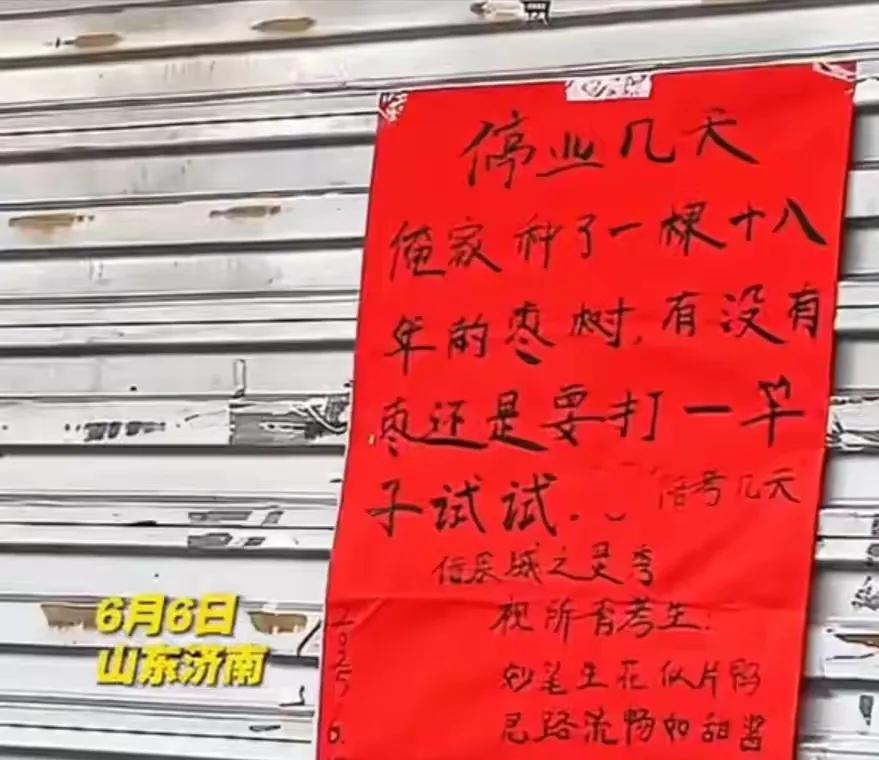 停业几天
俺家种了一棵十八
年的枣树,有没有
枣还是要打一竿
子试试..
陪考几天
借泉城之灵秀
祝所有考生:
妙笔生花似片鸭
思路流畅如甜酱
2025.6.
6月6日
山东济南